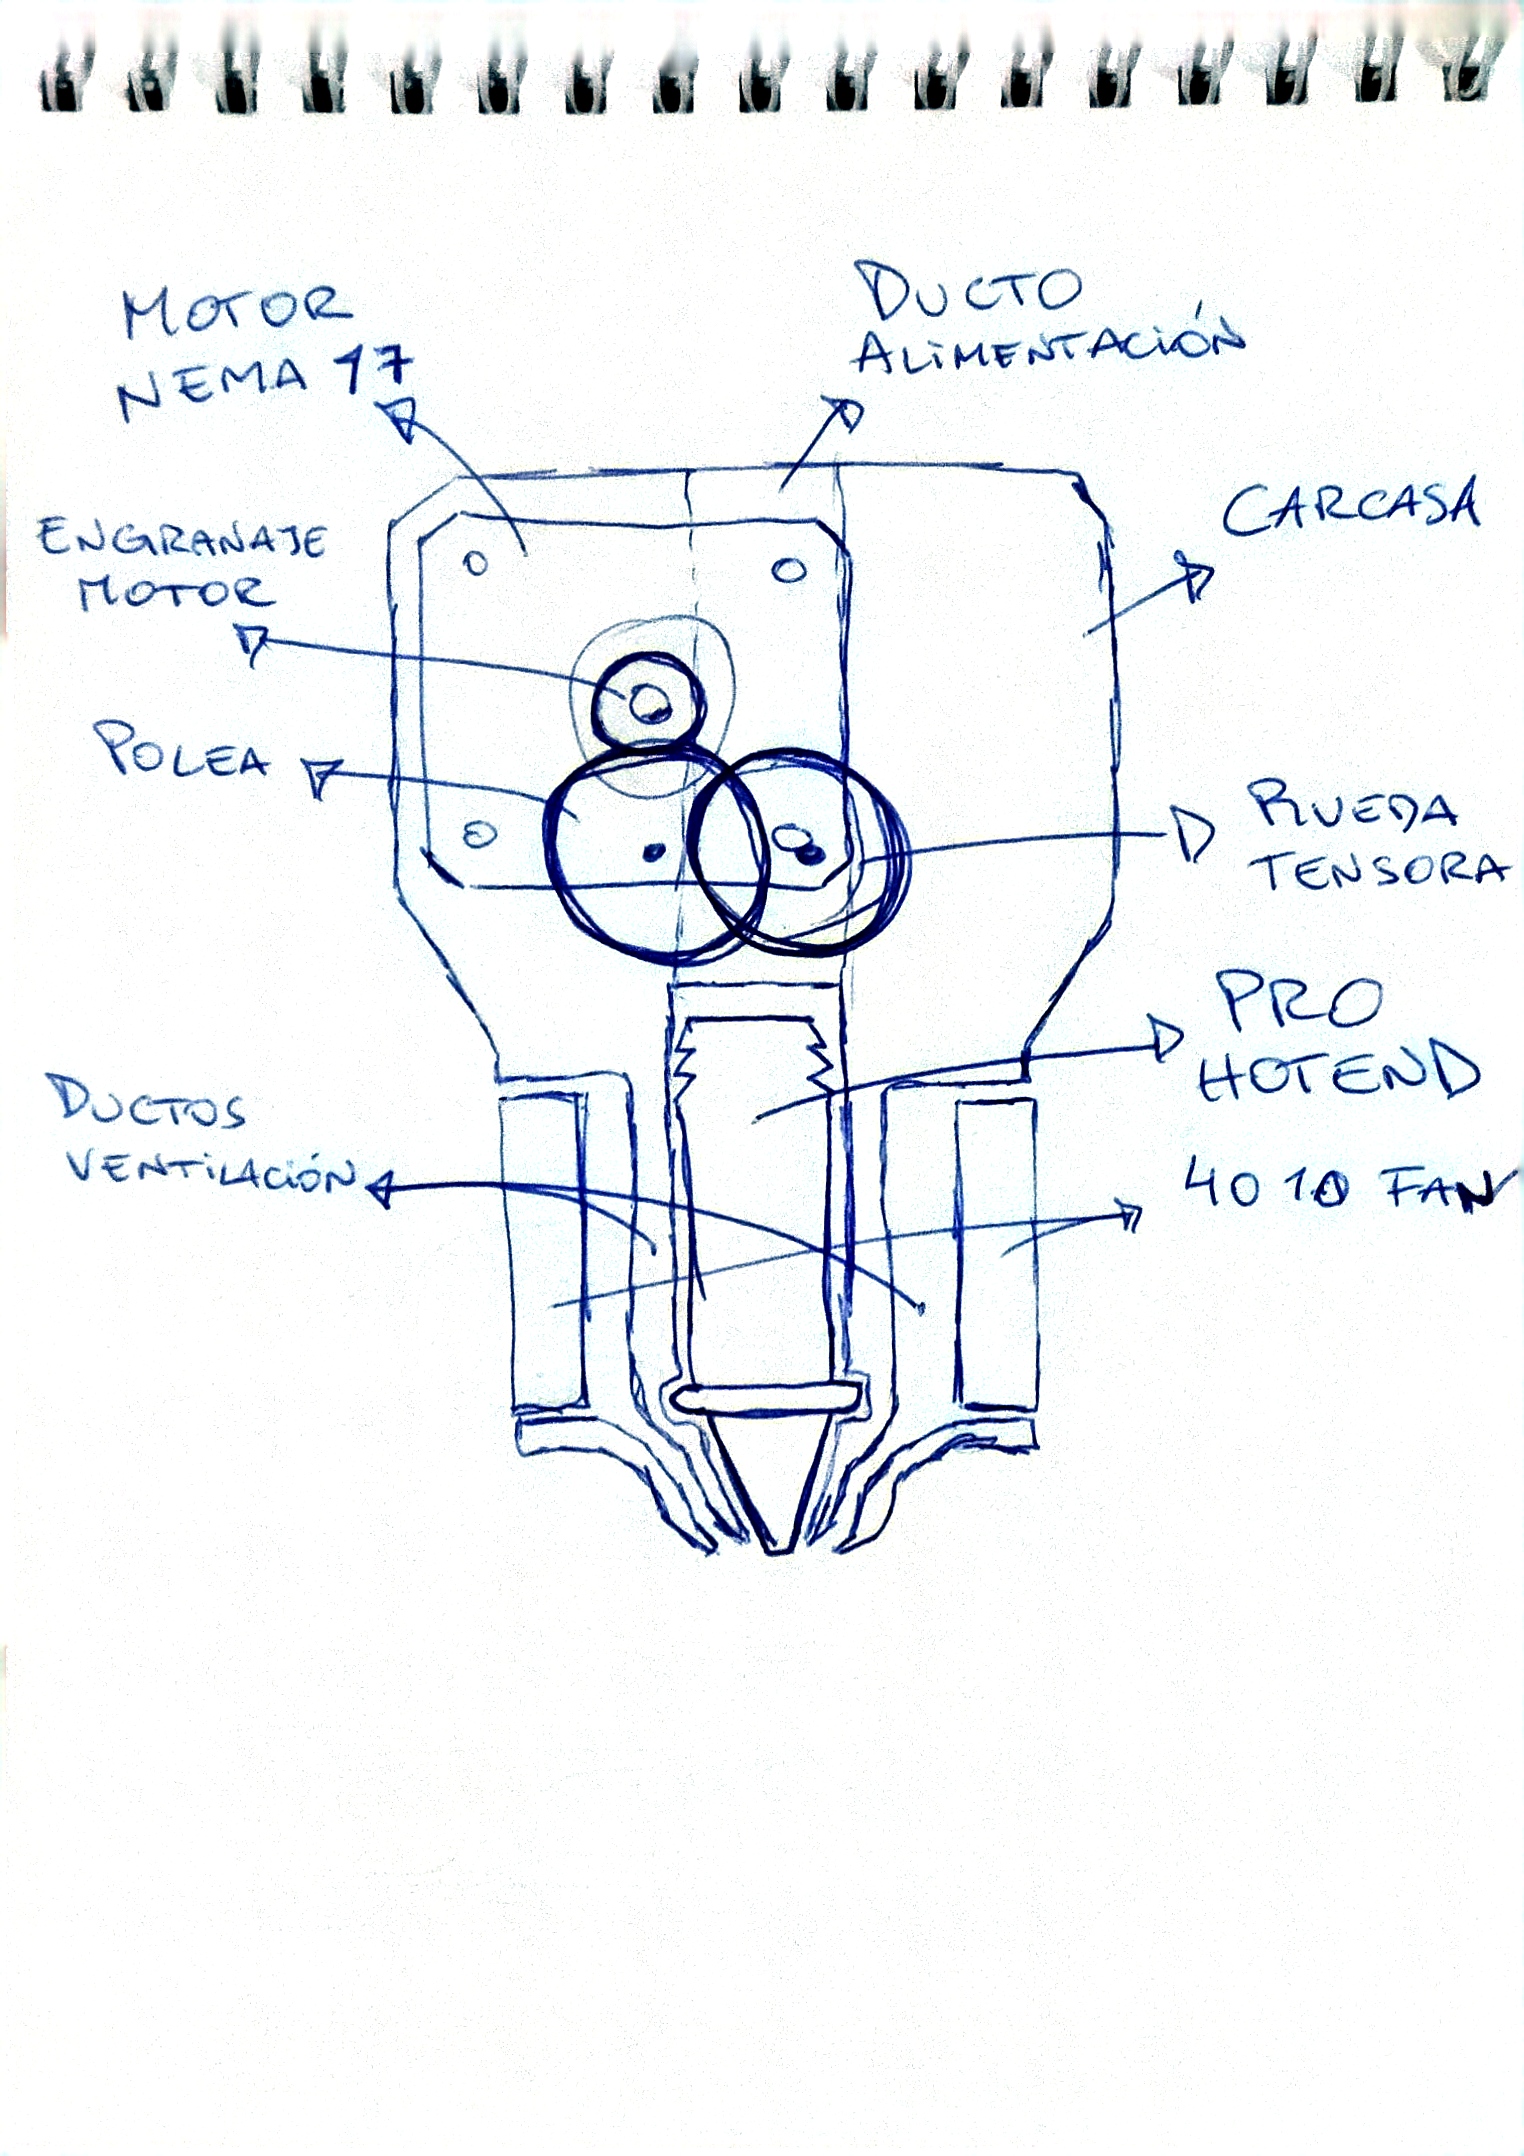 MOTOR
NEMA 17
DUCTO
ALIMENTACIÓN
ENGRANAJE
MOTOR
CARCASA
POLEA
RUEDA
TENSORA
PRO
HOTEND
DUCTOS
VENTILACIÓN
4010 FAN